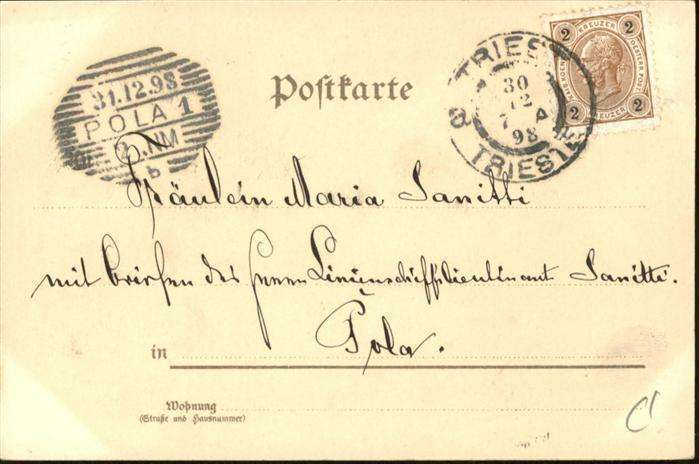 31.12.98
POLA 1
2.NM
b
Postkarte
TRIEST
30
12
7 A
98
a
TRIESTE
2 KREUZER 2
2 KREUZER 2
Fräulein Maria Sanitti
mit Briefen des Herrn Linienschiffslieutenant Sanitti.
in Pola.
Wohnung
(Straße und Hausnummer)